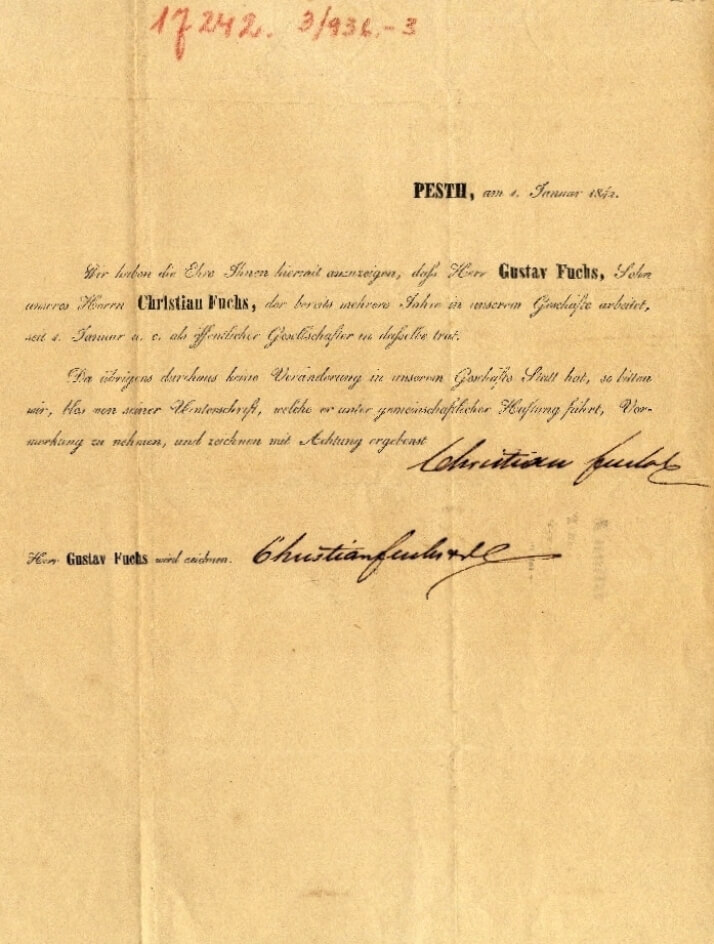 17242. 3/936.-3
PESTH, am 1. Januar 1842.
Wir haben die Ehre Ihnen hiermit anzuzeigen, daß Herr Gustav Fuchs, Sohn
unseres Herrn Christian Fuchs, der bereits mehrere Jahre in unserem Geschäfte arbeitet,
seit 1. Januar a. c. als öffentlicher Gesellschafter in dasselbe trat.
Da übrigens durchaus keine Veränderung in unserem Geschäfte Statt hat, so bitten
wir, blos von seiner Unterschrift, welche er unter gemeinschaftlicher Haftung führt, Vor-
merkung zu nehmen, und zeichnen mit Achtung ergebenst
Christian Fuchs
Herr Gustav Fuchs wird zeichnen. Christian Fuchs